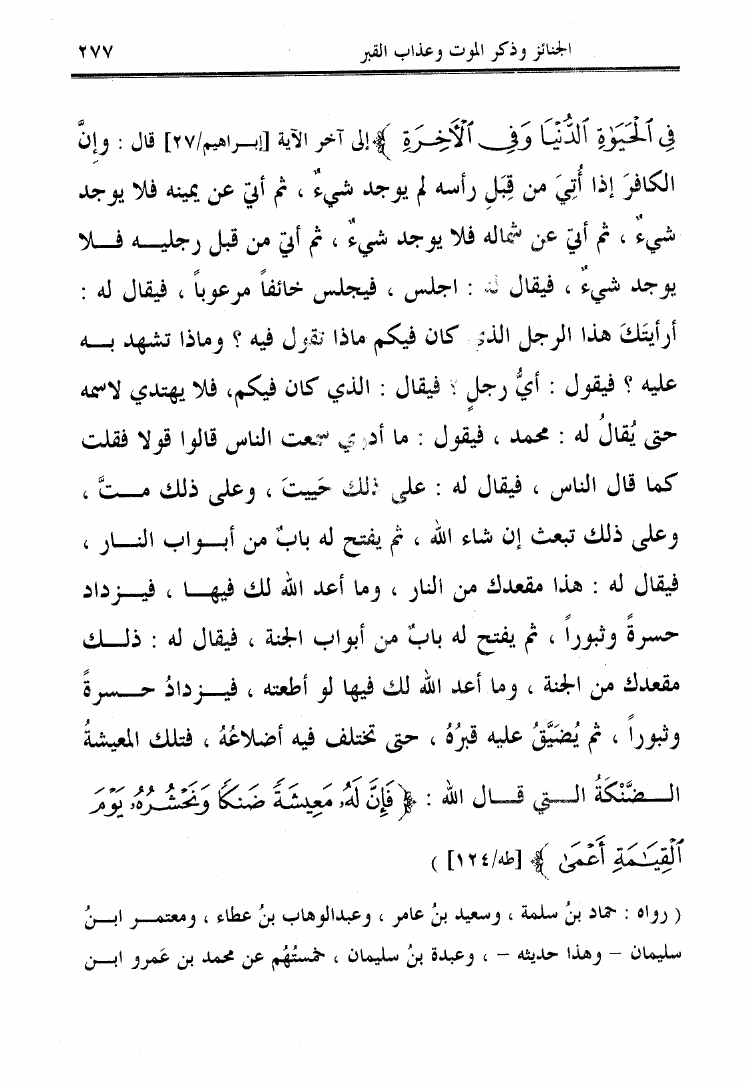 الجنائز وذكر الموت وعذاب القبر ٢٧٧
فِي ٱلْحَيَوٰةِ ٱلدُّنْيَا وَفِي ٱلْأَخِرَةِ ﴾ إلى آخر الآية [إبـراهيم/٢٧] قال : وإنَّ
الكافرَ إذا أُتِيَ من قِبَلِ رأسه لم يوجد شيءٌ ، ثم أتي عن يمينه فلا يوجد
شيءٌ ، ثم أتي عن شماله فلا يوجد شيءٌ ، ثم أتي من قبل رجليـه فـلا
يوجد شيءٌ ، فيقال له : اجلس ، فيجلس خائفاً مرعوباً ، فيقال له :
أرأيتَكَ هذا الرجل الذي كان فيكم ماذا تقول فيه ؟ وماذا تشهد بـه
عليه ؟ فيقول : أيُّ رجلٍ ؟ فيقال : الذي كان فيكم، فلا يهتدي لاسمه
حتى يُقالُ له : محمد ، فيقول : ما أدري سمعت الناس قالوا قولا فقلت
كما قال الناس ، فيقال له : على ذلك حَييتَ ، وعلى ذلك مـتَّ ،
وعلى ذلك تبعث إن شاء الله ، ثم يفتح له بابٌ من أبـواب النـار ،
فيقال له : هذا مقعدك من النار ، وما أعد الله لك فيهـا ، فيـزداد
حسرةً وثبوراً ، ثم يفتح له بابٌ من أبواب الجنة ، فيقال له : ذلـك
مقعدك من الجنة ، وما أعد الله لك فيها لو أطعته ، فيـزدادُ حـسرةً
وثبوراً ، ثم يُضَيَّقُ عليه قبرُهُ ، حتى تختلف فيه أضلاعُهُ ، فتلك المعيشةُ
الـضَّنْكَةُ الـتي قـال الله : ﴿ فَإِنَّ لَهُۥ مَعِيشَةً ضَنكًا وَنَحْشُرُهُۥ يَوْمَ
ٱلْقِيَٰمَةِ أَعْمَىٰ ﴾ [طه/١٢٤] )
( رواه : حماد بنُ سلمة ، وسعيد بنُ عامر ، وعبدالوهاب بنُ عطاء ، ومعتمـر ابـنُ
سليمان – وهذا حديثه – ، وعبدة بنُ سليمان ، خمستُهُم عن محمد بن عَمرو ابـن